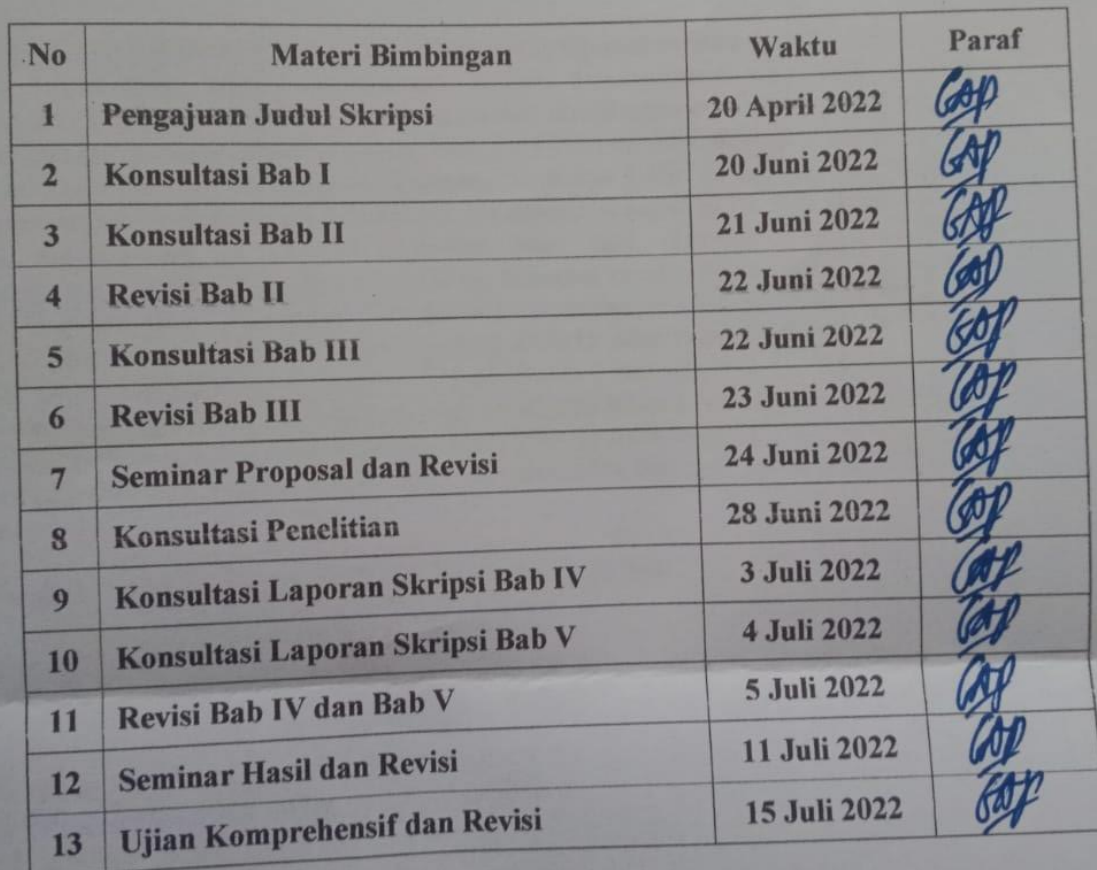 No Materi Bimbingan Waktu Paraf
1 Pengajuan Judul Skripsi 20 April 2022
2 Konsultasi Bab I 20 Juni 2022
3 Konsultasi Bab II 21 Juni 2022
4 Revisi Bab II 22 Juni 2022
5 Konsultasi Bab III 22 Juni 2022
6 Revisi Bab III 23 Juni 2022
7 Seminar Proposal dan Revisi 24 Juni 2022
8 Konsultasi Penelitian 28 Juni 2022
9 Konsultasi Laporan Skripsi Bab IV 3 Juli 2022
10 Konsultasi Laporan Skripsi Bab V 4 Juli 2022
11 Revisi Bab IV dan Bab V 5 Juli 2022
12 Seminar Hasil dan Revisi 11 Juli 2022
13 Ujian Komprehensif dan Revisi 15 Juli 2022